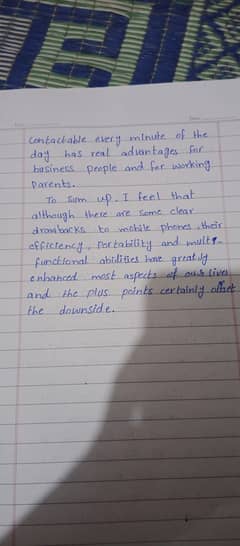 contactable every minute of the
day has real advantages for
business people and for working
parents.
To sum up. I feel that
although there are some clear
drawbacks to mobile phones, their
efficiency, portability and multi-
functional abilities have greatly
enhanced most aspects of our lives
and the plus points certainly offset
the downside.